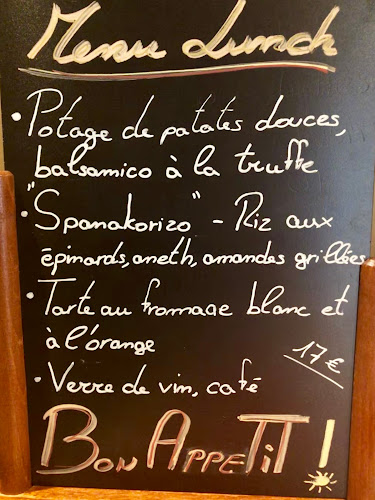 Menu Lunch
• Potage de patates douces,
balsamico à la truffe
• "Spanakorizo" - Riz aux
épinards, aneth, amandes grillées
• Tarte au fromage blanc et
à l'orange
17 €
• Verre de vin, café
BON APPETIT !